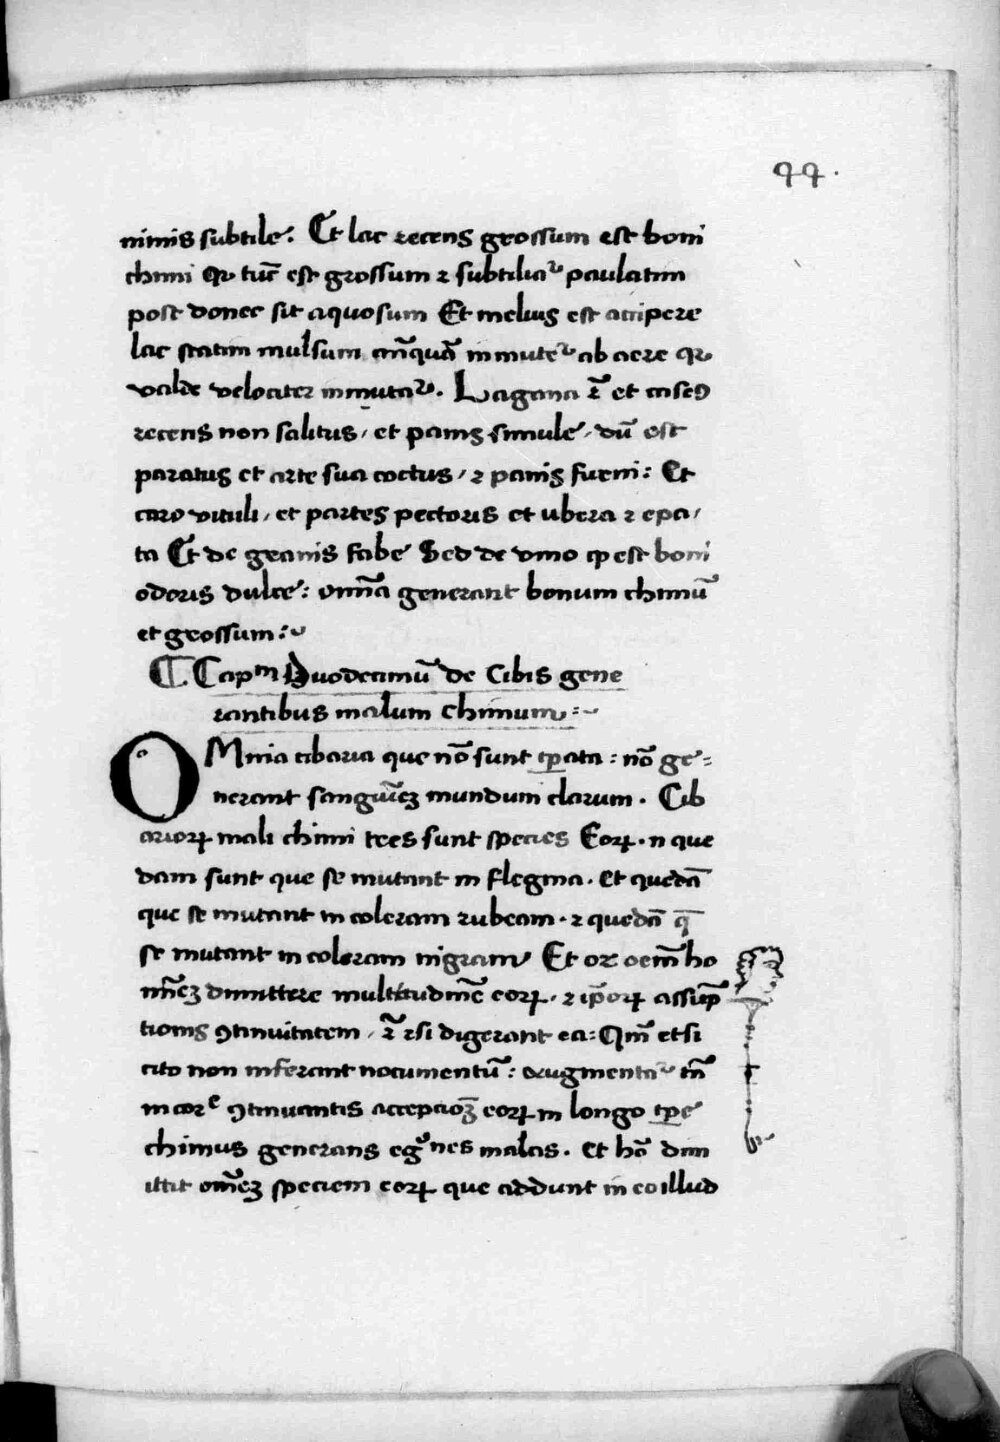 44.
nimis subtile: Et lac recens grossum est boni
chimi qr tūc est grossum ⁊ subtiliaᷣ paulatim
post donec sit aquosum Et melius est accipere
lac statim mulsum an̄quā inmuteᷣ ab aere qr
valde velociter inmutaᷣ. Lagana ⁊̄ et caseꝯ
recens non salitus, et panis simule, dū est
paratus et arte sua coctus, ⁊ panis furni: Et
caro vituli, et partes pectoris et ubera ⁊ epa,
ta Et de granis fabe Sed de vino qp est boni
odoris dulce: omn̄a generant bonum chimū
et grossum:~
¶ Capᵐ Duodecimū de Cibis gene
rantibus malum chimum:~
OMnia cibaria que nō sunt tꝑata: nō ge=
nerant sanguīeꝫ mundum clarum. Cib
arioꝝ mali chimi tres sunt species Eoꝝ. n que
dam sunt que se mutant in flegma. Et quedā
que se mutant in coleram rubeam. ⁊ quedā q̄
se mutant in coleram nigram Et oꝫ oem̄ ho
mīeꝫ dimittere multitudīnē eoꝝ. ⁊ ip̄oꝝ assūp
tionis ꝯtinuitatem, ⁊̄ ⁊si digerant ea: Qm̄ etsi
cito non inferant nocumentū: augmentaᷣ tn̄
in corᵉ ꝯtinuantis accepcioꝫ eoꝝ in longo tꝑe
chimus generans egᷣnes malas. Et hō dim
ittit om̄eꝫ speciem eoꝝ que addunt in eo illud